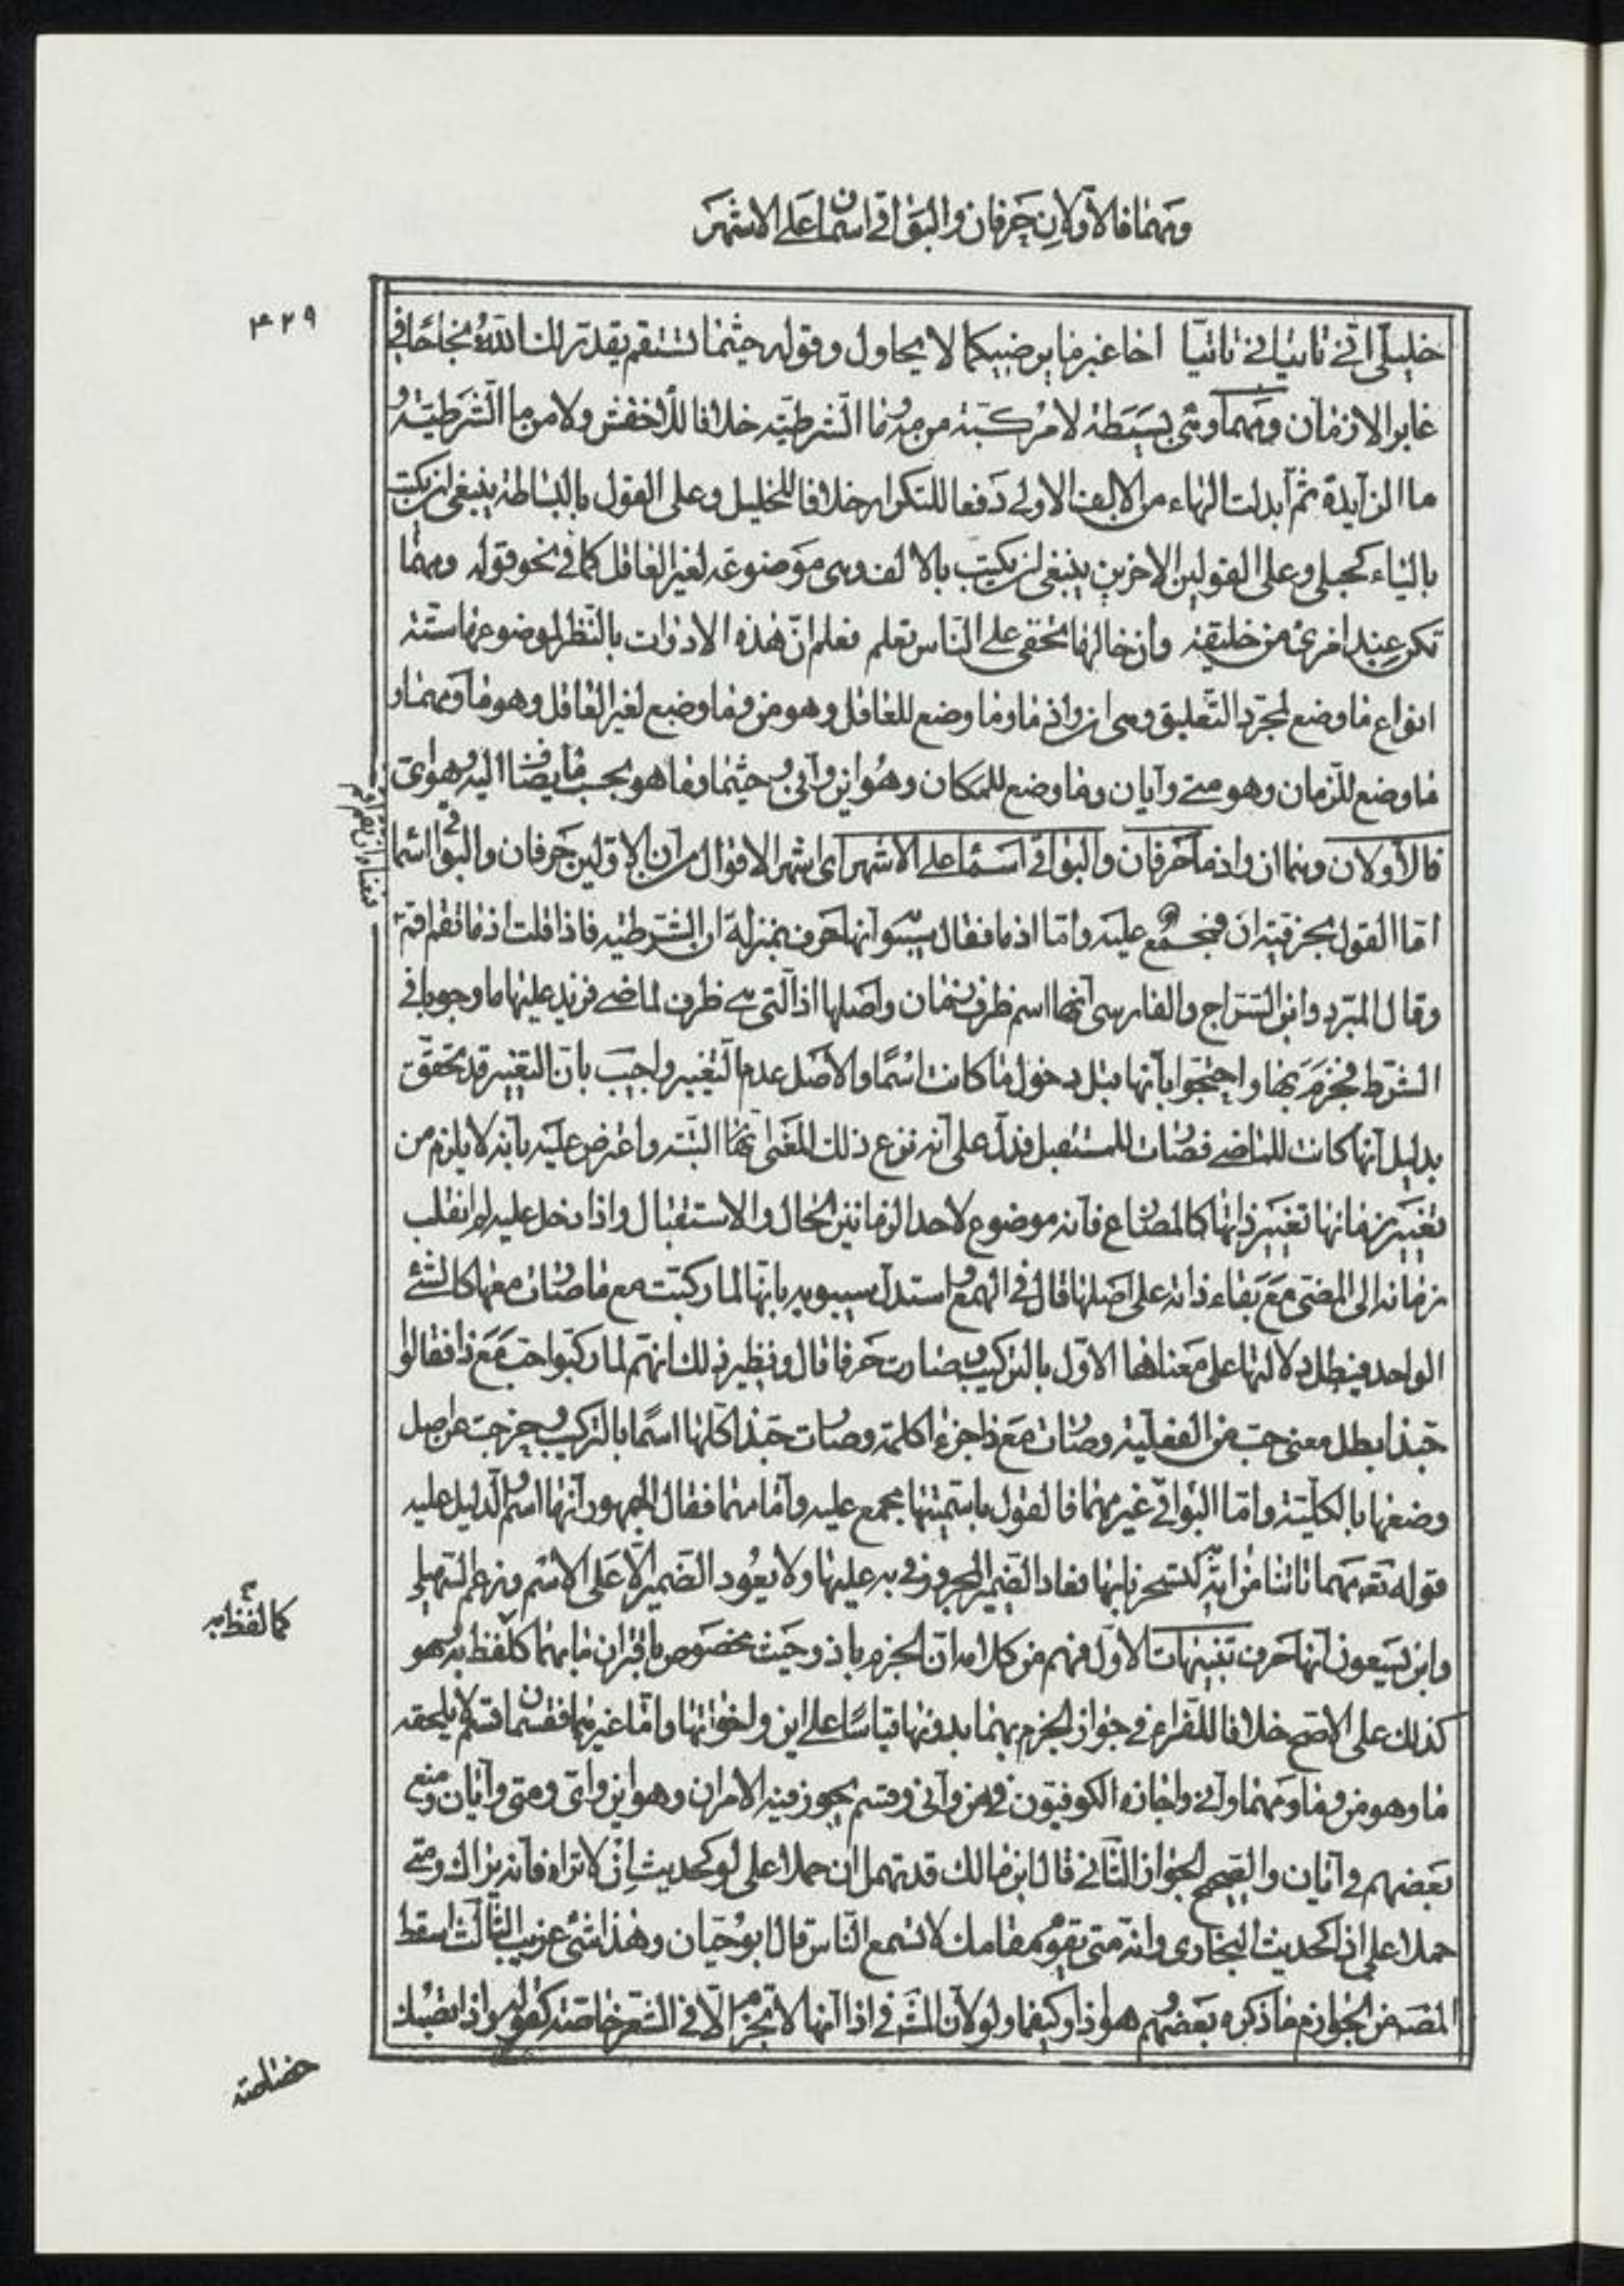 ومهما فالأولان حرفان والبواقي اسمان على الاشهر
۴۲۹
خليلي انى تاتياني تاتيا اخا غير ما يرضيكما لا يحاول وقوله حيثما تستقم يقدر لك الله نجاحا في
غابر الازمان ومهما وهي بسيطة لا مركبة من مه وما الشرطية خلافا للأخفش ولا من ما الشرطية و
ما الزايدة ثم ابدلت الهاء من الالف الاولى دفعا للتكرار خلافا للخليل وعلى القول بالبساطة ينبغي ان يكتب
بالياء كحبلى وعلى القولين الاخرين ينبغي ان يكتب بالالف وهي موضوعة لغير العاقل كما في نحو قوله ومهما
تكن عند امرئ من خليقة وان خالها تخفى على الناس تعلم فعلم ان هذه الادوات بالنظر لموضوعها ستة
انواع ما وضع لمجرد التعليق وهي ان واذ ما وما وضع للعاقل وهو من وما وضع لغير العاقل وهو ما ومهما و
ما وضع للزمان وهو متى وايان وما وضع للمكان وهو اين وانى وحيثما وما هو بحسب ما يضاف اليه وهو اى
فالأولان وهما ان واذ ما حرفان والبواقي اسماء على الاشهر اى اشهر الاقوال من ان الاولين حرفان والبواقي اسما
اما القول بحرفية ان فمجمع عليه واما اذ ما فقال سيبو انها حرف بمنزلة ان الشرطية فاذا قلت اذ ما تقم اقم
معناه ان تقم اقم
وقال المبرد وابن السراج والفارسى انها اسم ظرف زمان واصلها اذ التى هي ظرف لما مضى فزيد عليها ما وجوبا في
الشرط فجزم بها واحتجوا بانها قبل دخول ما كانت اسما والاصل عدم التغيير واجيب بان التغيير قد تحقق
بدليل انها كانت للماضى فصارت للمستقبل فدل على انه نزع ذلك المعنى منها البتة واعترض عليه بانه لا يلزم من
تغيير زمانها تغيير ذاتها كالمضارع فانه موضوع لاحد الزمانين الحال والاستقبال واذا دخل عليه لم انقلب
زمانه الى المضى مع بقاء ذاته على اصلها قال في الهمع واستدل سيبويه بانها لما ركبت مع ما صارت معها كالشئ
الواحد فبطل دلالتها على معناها الاول بالتركيب وصارت حرفا قال ونظير ذلك انهم لما ركبوا حب مع ذا فقالوا
حبذا بطل معنى حب من الفعلية وصارت مع ذا جزء كلمة وصارت حبذا كلها اسما بالتركيب وخرجت عن اصل
وضعها بالكلية واما البواقي غير مهما فالقول باسميتها مجمع عليه واما مهما فقال الجمهور انها اسم والدليل عليه
قوله تعه مهما تاتنا به من اية لتسحرنا بها فعاد الضمير المجرور في به عليها ولا يعود الضمير الا على الاسم وزعم السهيلى
وابن يسعون انها حرف تنبيهات الاول فهم من كلامه ان الجزم باذ وحيث مخصوص باقتران ما بهما كلفظ به وهو
كما لفظ به
كذلك على الاصح خلافا للفراء في جواز الجزم بهما بدونها قياسا على اين واخواتها واما غيرهما فقسمان قسم لا يلحقه
ما وهو من وما ومهما وانى واجازه الكوفيون في من وانى وقسم يجوز فيه الامران وهو اين واى ومتى وايان ومنع
بعضهم في ايان والصحيح الجواز الثاني قال ابن مالك قد تهمل ان حملا على لو كحديث ان لا تراه فانه يراك ومتى
حملا على اذا كحديث البخارى وانه متى يقوم مقامك لا تسمع الناس قال ابو حيان وهذا شئ غريب الثالث اسقط
المصنف من الجوازم ما ذكره بعضهم وهو اذا وكيفما ولو لان المشهور في اذا انها لا تجزم الا في الشعر خاصة كقوله واذا تصبك
خصاصة